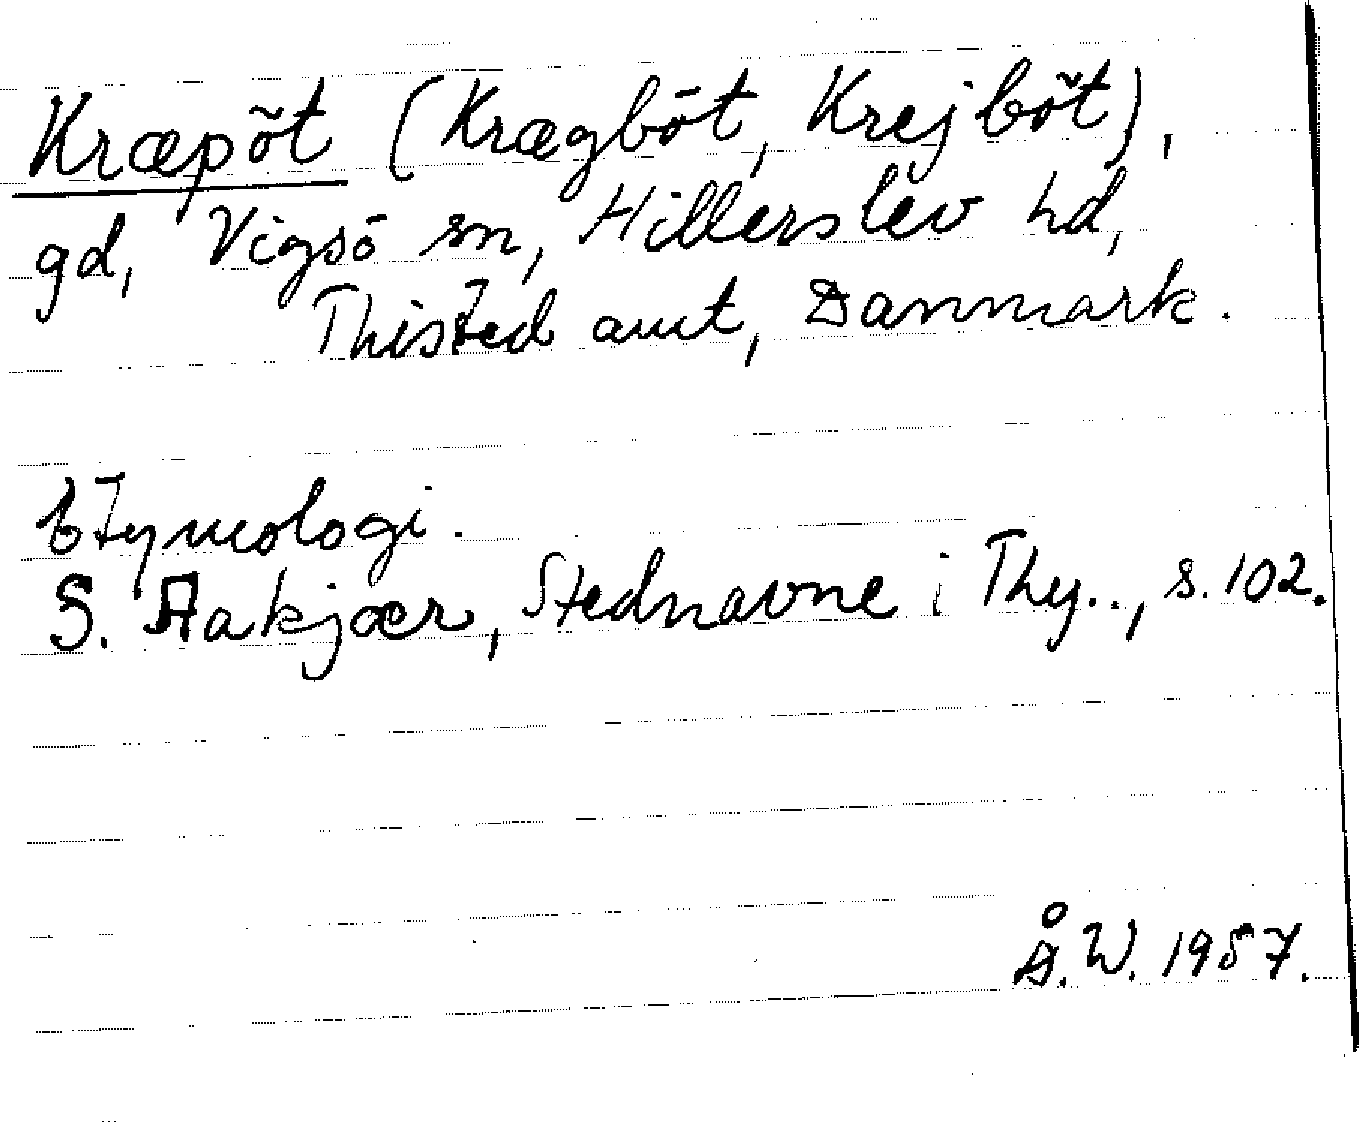 Kræpöt (Krægböt, Krejböt),
gd, Vigsö sn, Hillerslev hd,
Thisted amt, Danmark.
Etymologi.
S. Aakjær, Stednavne i Thy.., s. 102.
Å. W. 1957.